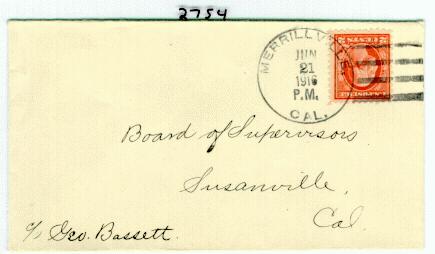 2754
MERRILLVILLE
JUN
21
1916
P.M.
CAL.
Board of Supervisors
Susanville,
Cal.
c/o Geo. Bassett.